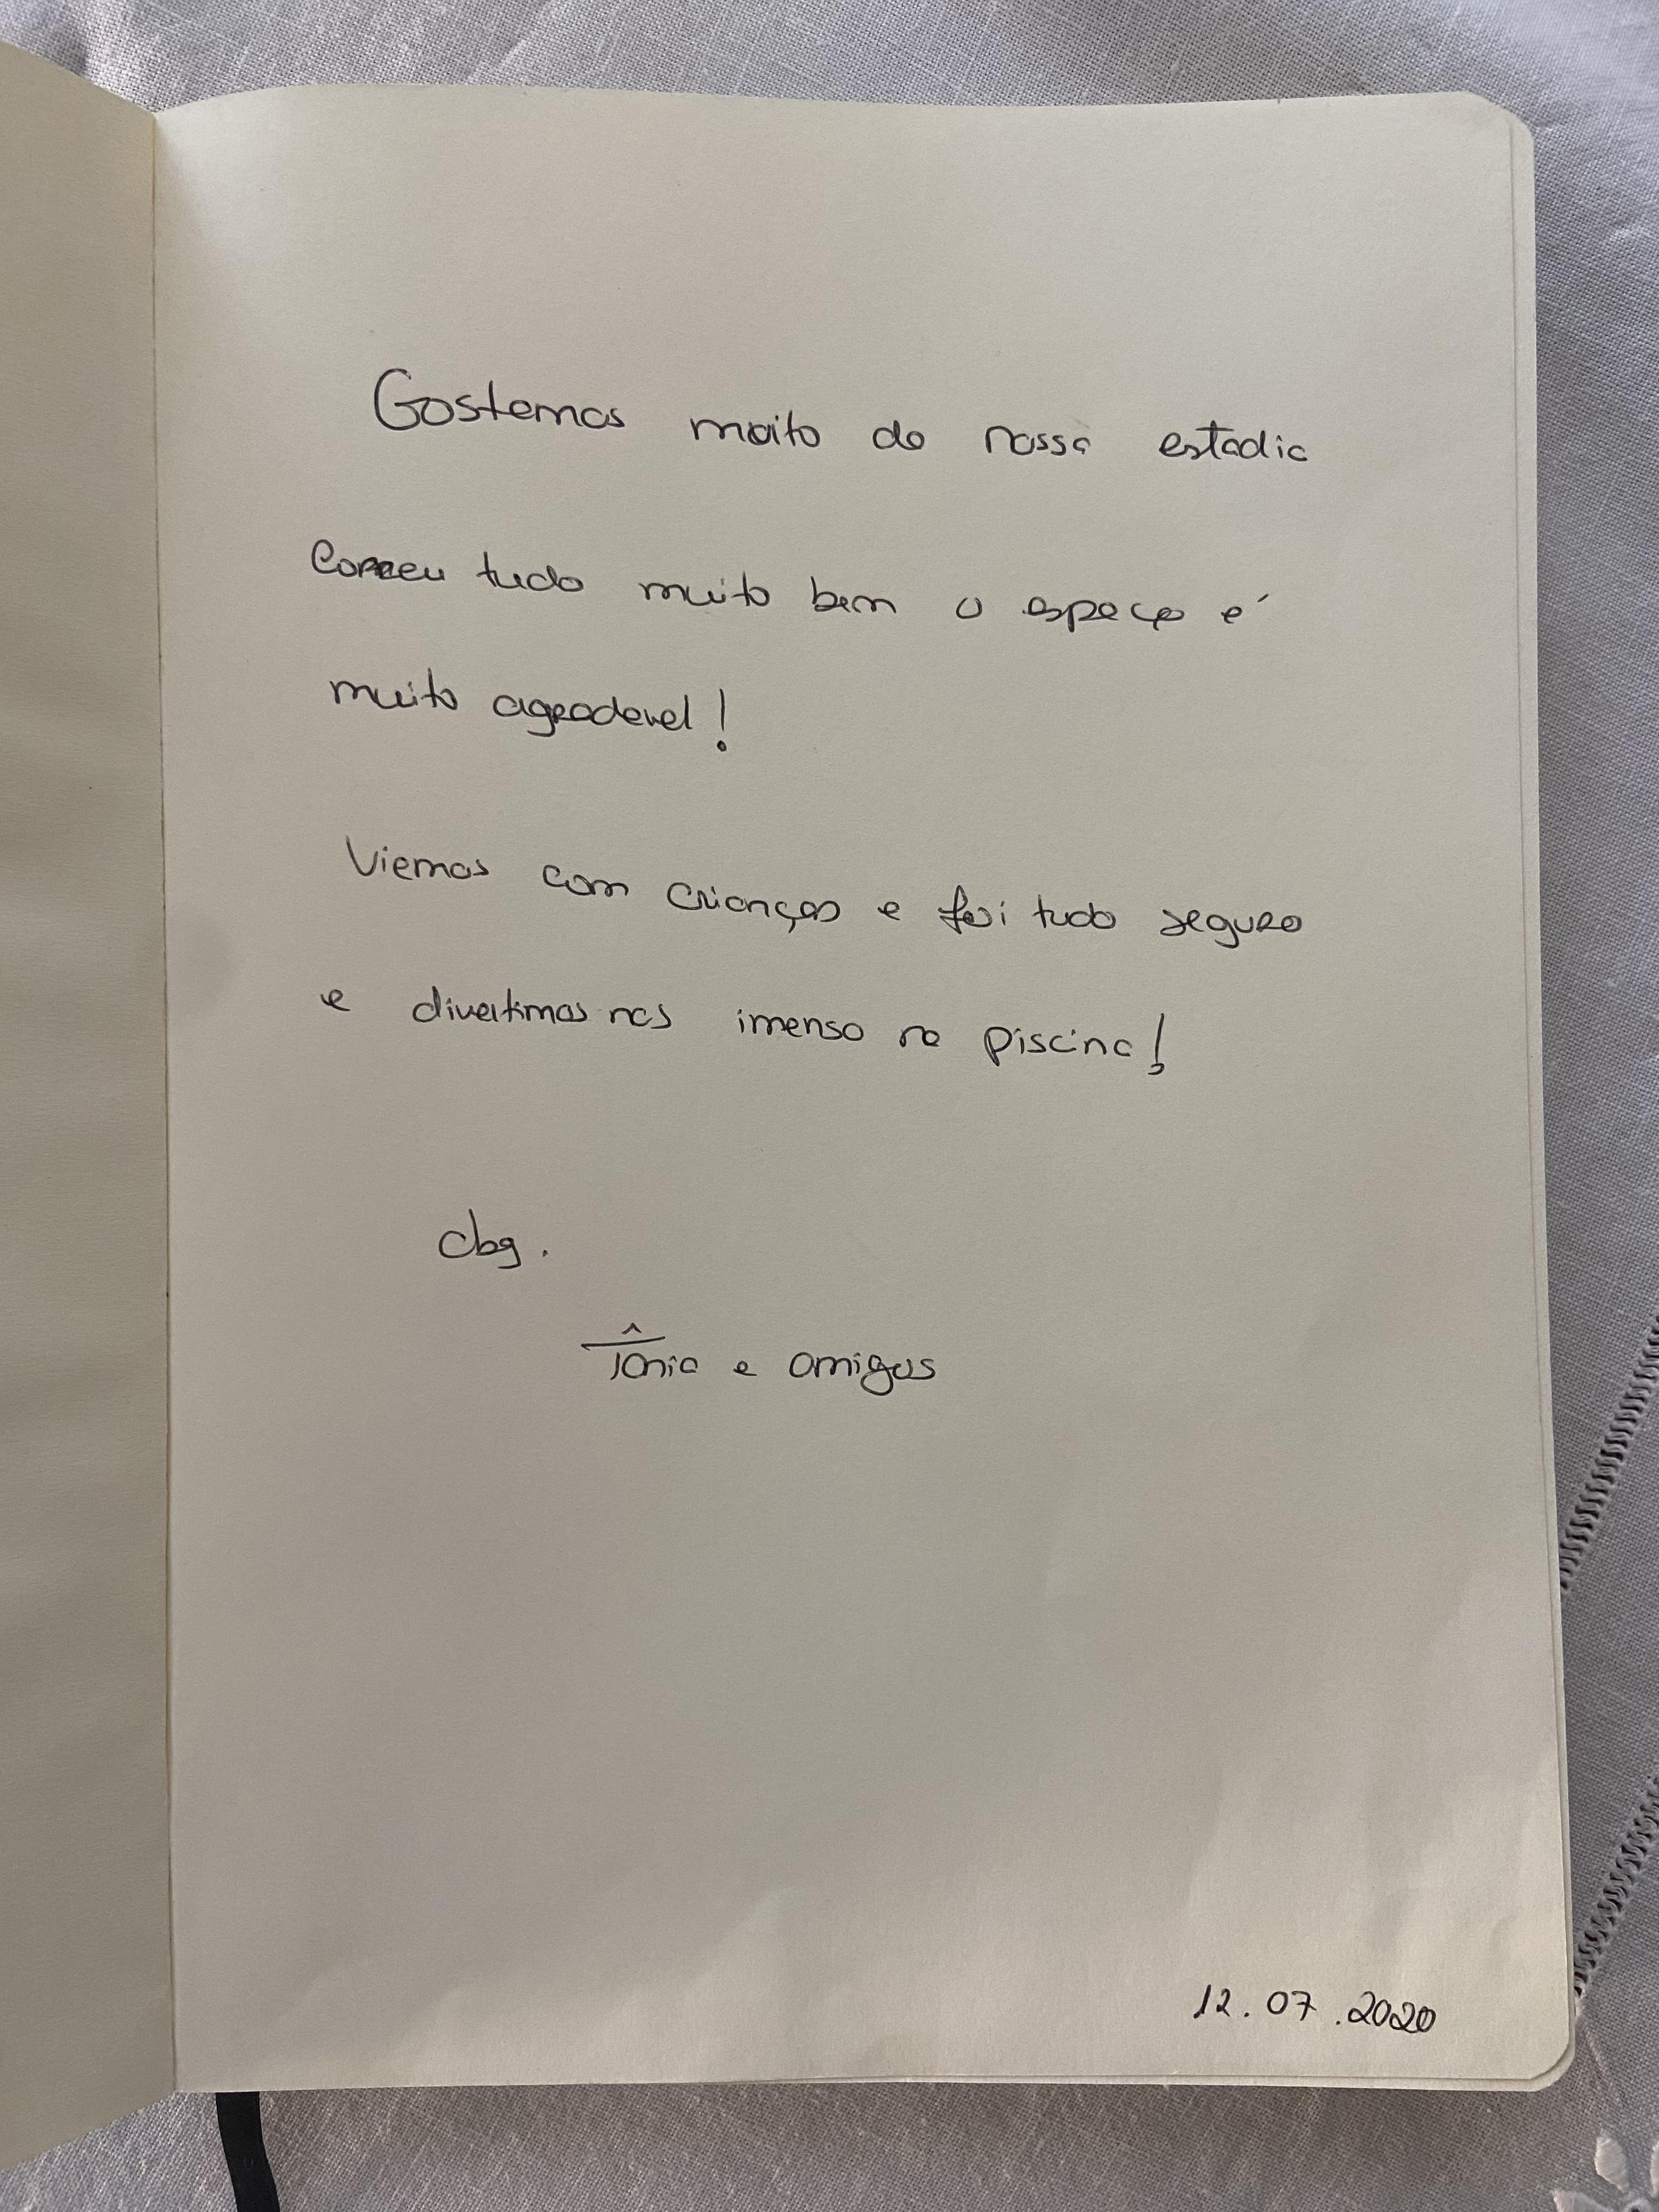 Gostemos muito da nossa estadia
Correu tudo muito bem o espaço é
muito agradavel!
Viemos com crianças e foi tudo seguro
e divertimos nos imenso na piscina!
Obg.
Tânia e amigos
12.07.2020